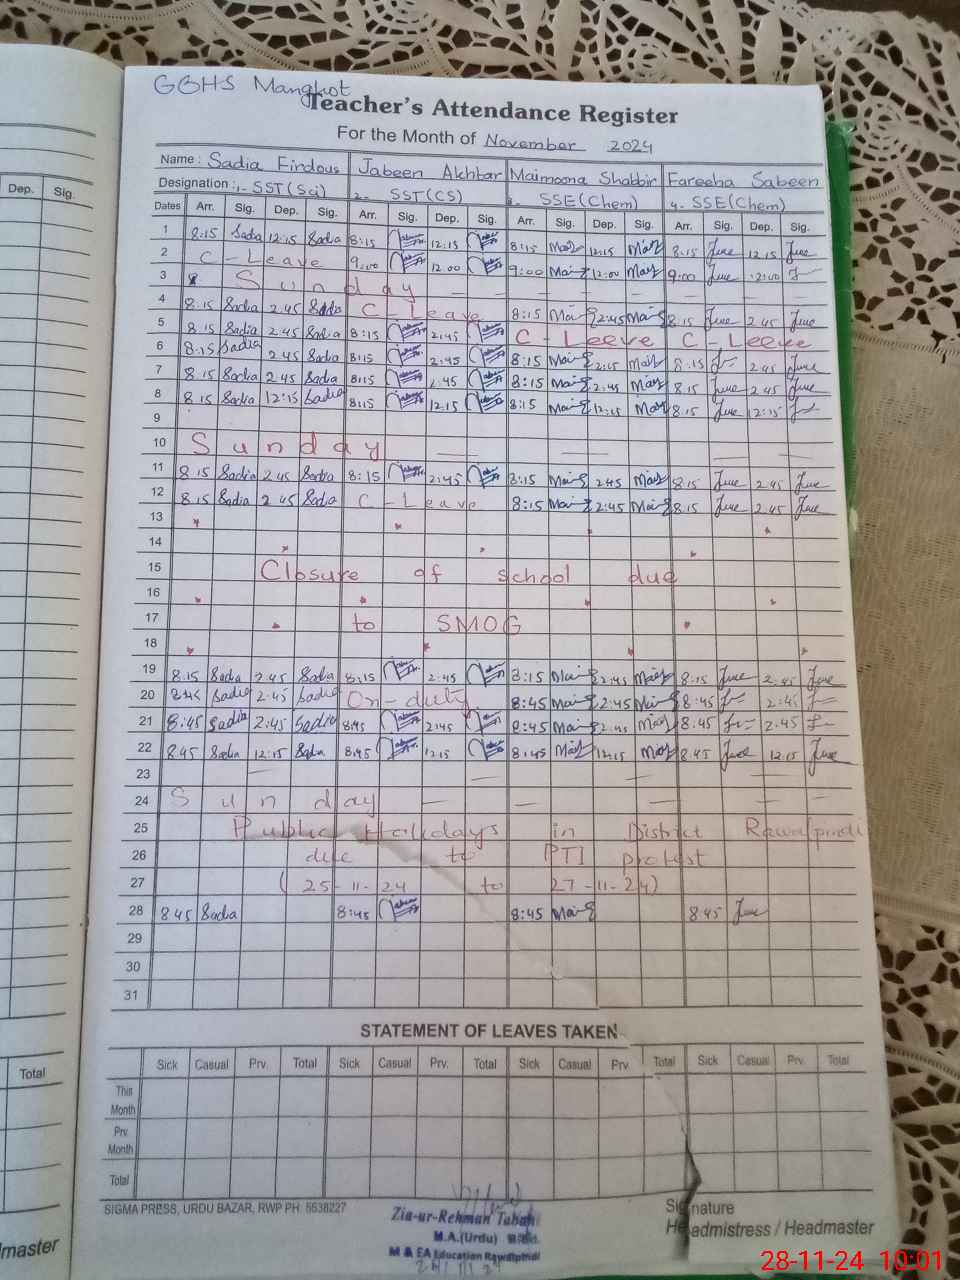 GGHS Mangkot
Teacher's Attendance Register
For the Month of November 2024
Name: Sadia Firdous Jabeen Akhtar Maimoona Shabbir Fareeha Sabeen
Designation: 1- SST(Sci) 2- SST(CS) SSE(Chem) 4. SSE(Chem)
Dep. Sig. Dates Arr. Sig. Dep. Sig. Arr. Sig. Dep. Sig. Arr. Sig. Dep. Sig. Arr. Sig. Dep. Sig.
1 8:15 Sadia 12:15 Sadia 8:15 12:15 8:15 12:15 8:15 12:15
2 C-Leave 9:00 12:00 9:00 12:00 9:00 12:00
3 Sunday
4 8:15 Sadia 2:45 Sadia C-Leave 8:15 2:45 8:15 2:45
5 8:15 Sadia 2:45 Sadia 8:15 2:45 C-Leeve C-Leeve
6 8:15 Sadia 2:45 Sadia 8:15 2:45 8:15 2:45 8:15 2:45
7 8:15 Sadia 2:45 Sadia 8:15 2:45 8:15 2:45 8:15 2:45
8 8:15 Sadia 12:15 Sadia 8:15 12:15 8:15 12:15 8:15 12:15
9
10 Sunday
11 8:15 Sadia 2:45 Sadia 8:15 2:45 8:15 2:45 8:15 2:45
12 8:15 Sadia 2:45 Sadia C-Leave 8:15 2:45 8:15 2:45
13
14
15 Closure of school due
16
17 to SMOG
18
19 8:15 Sadia 2:45 Sadia 8:15 2:45 8:15 2:45 8:15 2:45
20 Sadia 2:45 Sadia On-duty 8:45 2:45 8:45 2:45
21 8:45 Sadia 2:45 Sadia 8:45 2:45 8:45 2:45 8:45 2:45
22 8:45 Sadia 12:15 Sadia 8:45 12:15 8:45 12:15 8:45 12:15
23
24 Sunday
25 Public Holidays in District Rawalpindi
26 due to PTI protest
27 (25-11-24 to 27-11-24)
28 8:45 Sadia 8:45 8:45 8:45
29
30
31
STATEMENT OF LEAVES TAKEN
Total Sick Casual Prv. Total Sick Casual Prv. Total Sick Casual Prv. Total Sick Casual Prv. Total
This Month
Prv. Month
Total
SIGMA PRESS, URDU BAZAR, RWP PH: 5538227
Zia-ur-Rehman
M.A.(Urdu)
M & EA Education Rawalpindi
Signature
Headmistress / Headmaster
master
28-11-24 10:01